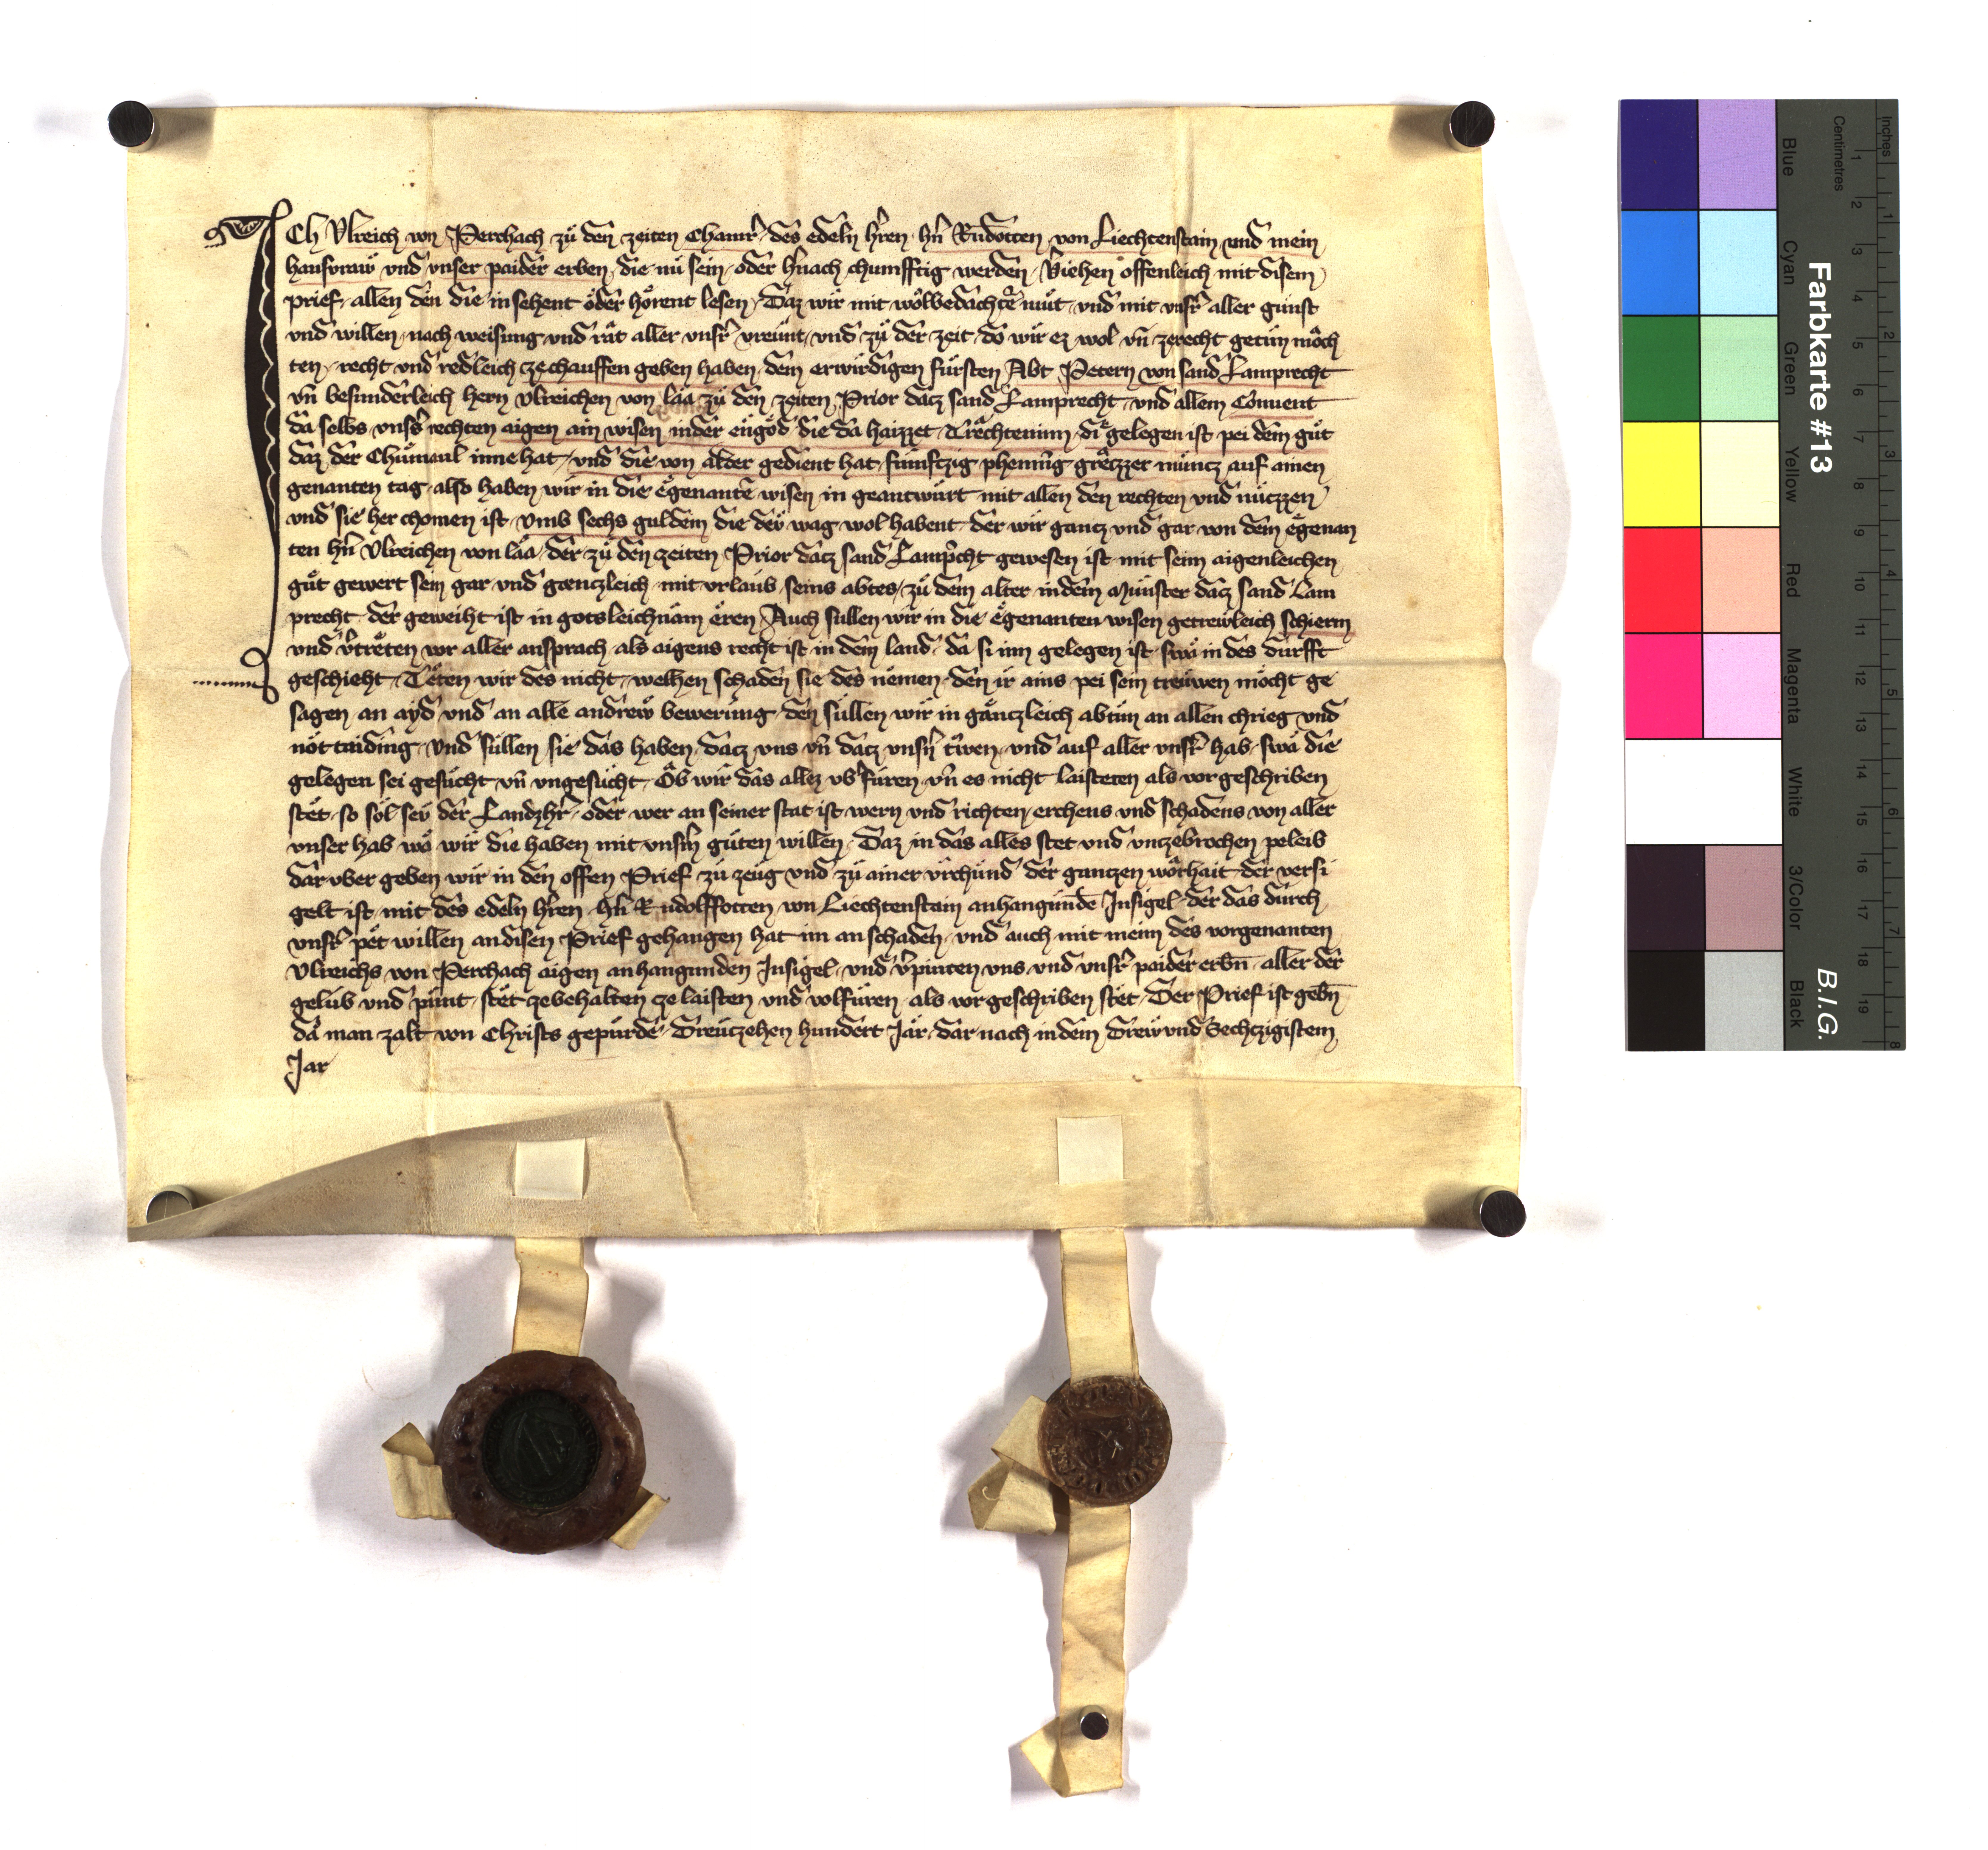 ICh Ulreich von Perchach zů den zeiten Chamr̄ des edeln hr̄en hn̄ Rudotten von Liechtenstain und mein
hausvraw und unser paider erben die nu sein oder hn̄ach chumfftig werden Viehen offenleich mit disem
prief allen den die in sehent oder hörent lesen Daz wir mit wolbedachtē mut und mit unsr̄ aller gunst
und willen nach weisung und rat aller unsr̄ vreunt und zů der zeit do wir ez wol un̄ zerecht getun moch
ten recht und redleich zechauffen geben haben dem erwirdigen fürsten Abt Petern von sand Lamprecht
un̄ besunderleich hern Ulreichen von Laa zů den zeiten Prior dacz sand Lamprecht und allem Convent
da selbs unsr̄s rechten aigen ain wisen in der eingöd die da haizzet Trächteninn di gelegen ist pei dem gůt
daz der Chumaul inne hat und die von alder gedient hat fümftzig phenning gretzzer müncz auf ainen
genanten tag also haben wir in die egenantē wisen in geantwurt mit allen den rechten und nuczzen
und sie her chomen ist Umb sechs guldein die der wag wol habent der wir gancz und gar von dem egenan
ten hn̄ Ulreichen von Laa der zů den zeiten Prior dacz sand Lamp̄cht gewesen ist mit seim aigenleichen
gůt gewert sein gar und gænczleich mit urlaub seins abtes zů dem alter in dem Münster dacz sand Lam
precht der geweiht ist in gotsleichnam eren Auch sullen wir in die egenanten wisen getrewleich schierm
und v̄treten vor aller ansprach als aigens recht ist in dem land da si inn gelegen ist swa in des durfft
geschieht Teten wir des nicht welhen schaden sie des nemen den ir ains pei sein treuwen möcht ge
sagen an ayd und an alle andrew bewerung den sullen wir in gänczleich abtun an allen chrieg und
nöttaiding Und sullen sie das haben dacz uns un̄ dacz unsn̄ tr̄wen und auf aller unsr̄ hab swa die
gelegen sei gesucht un̄ ungesucht Ob wir das allez ub̄füren un̄ es nicht laisteten als vorgeschriben
stet so sol seu der Landzhr̄ oder wer an seiner stat ist wern und richten erchens und schadens von aller
unser hab wo wir die haben mit unsm̄ guten willen Daz in das alles stet und unzebrochen peleib
dar uber geben wir in den offen Prief zů zeug und zů ainer urchund der ganczen worhait der versi
gelt ist mit des edeln hr̄en hn̄ Rudolffotten von Liechtenstain anhangundē Insigel der das durch
unsr̄ pet willen an disen Prief gehangen hat im an schaden und auch mit meim des vorgenanten
Ulreichs von Perchach aigen anhangunden Insigel und v̄pinten uns und unsr̄ paider erbn̄ aller der
gelub und punt stet ze behalten ze laisten und volfüren als vorgeschriben stet Der Prief ist gebn̄
da man zalt von Christs gepurde Dreuczehen hundert Jar dar nach in dem Drew und Sechczigistem
Jar
Farbkarte #13
B.I.G.
Inches
Centimetres
Blue
Cyan
Green
Yellow
Red
Magenta
White
3/Color
Black
1 2 3 4 5 6 7 8 9 10 11 12 13 14 15 16 17 18 19
1 2 3 4 5 6 7 8